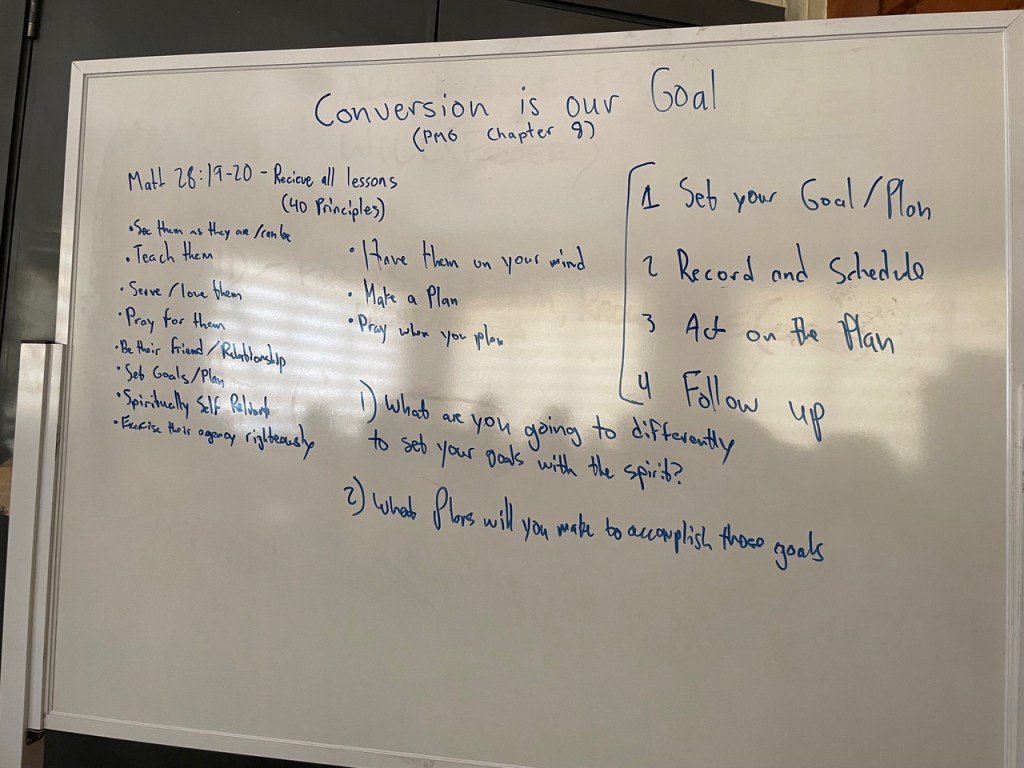 Conversion is our Goal
(PMG Chapter 8)
Matt 28:19-20 - Recieve all lessons
(40 Principles)
• See them as they are/can be
• Teach them
• Serve/love them
• Pray for them
• Be their friend/Relationship
• Set Goals/Plan
• Spiritually Self Reliant
• Exercise their agency righteously
• Have them on your mind
• Make a Plan
• Pray when you plan
1 Set your Goal/Plan
2 Record and Schedule
3 Act on the Plan
4 Follow up
1) What are you going to differently
to set your goals with the spirit?
2) What Plans will you make to accomplish those goals